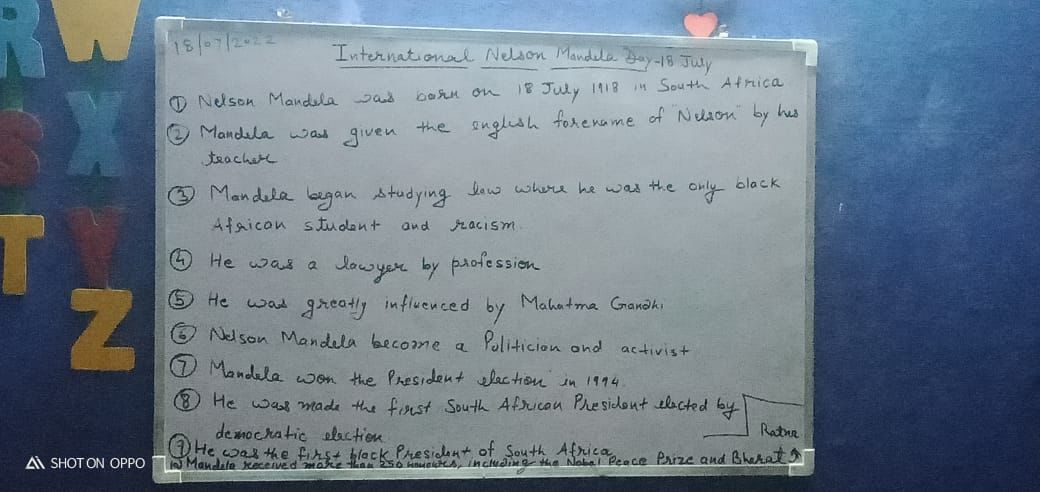 R W
18/07/2022
International Nelson Mandela Day-18 July
① Nelson Mandela was born on 18 July 1918 in South Africa
② Mandela was given the english forename of "Nelson" by his
teacher
③ Mandela began studying law where he was the only black
African student and racism.
④ He was a lawyer by profession
⑤ He was greatly influenced by Mahatma Gandhi
⑥ Nelson Mandela become a Politician and activist
⑦ Mandela won the President election in 1994.
⑧ He was made the first South African President elected by
democratic election
⑨ He was the first black President of South Africa
10 Mandela received more than 250 honours, including the Nobel Peace Prize and Bharat
Ratna
S X
T Y
Z
SHOT ON OPPO